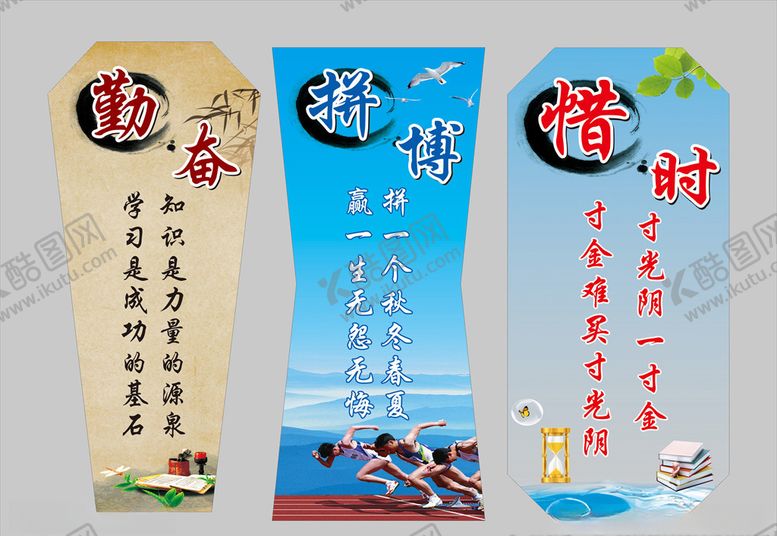 勤奋
知识是力量的源泉
学习是成功的基石
拼博
拼一个秋冬春夏
赢一生无怨无悔
惜时
寸光阴一寸金
寸金难买寸光阴
酷图网
www.ikutu.com
酷图网
www.ikutu.com
酷图网
www.ikutu.com